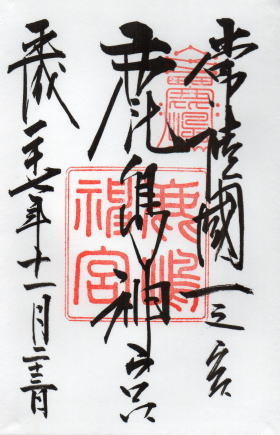 常陸國一之宮
鹿島神宮
平成二十七年十一月二十二日
鹿嶋神宮